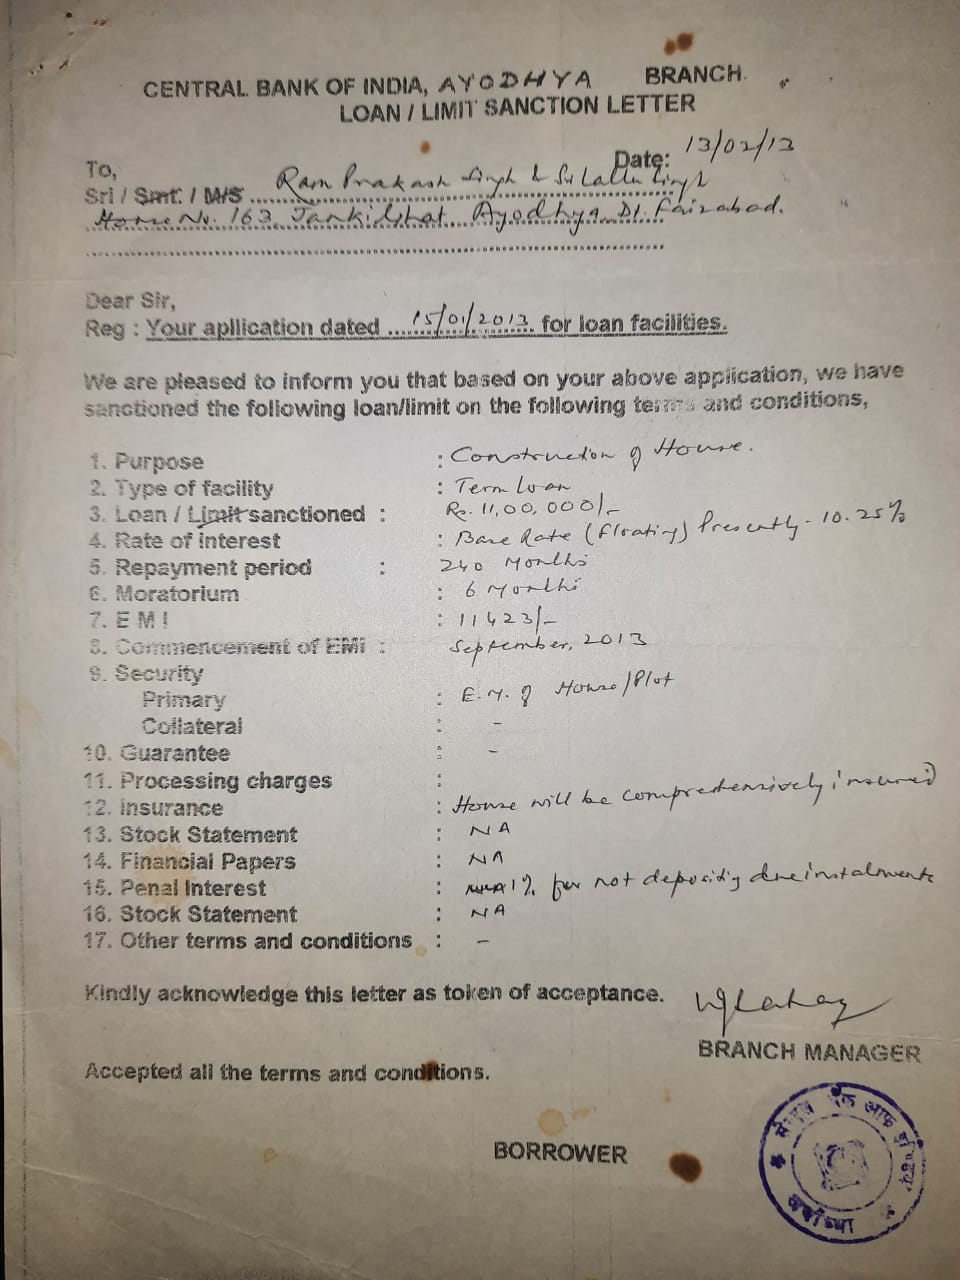 CENTRAL BANK OF INDIA, AYODHYA BRANCH
LOAN / LIMIT SANCTION LETTER
Date: 13/02/13
To,
Sri / Smt. / M/S Ram Prakash Singh & Sri Lallu Singh
House No. 163, Jankighat Ayodhya Dt. Faizabad.
Dear Sir,
Reg : Your apllication dated 15/01/2013 for loan facilities.
We are pleased to inform you that based on your above application, we have
sanctioned the following loan/limit on the following terms and conditions,
1. Purpose : Construction of House.
2. Type of facility : Term Loan
3. Loan / Limit sanctioned : Rs. 11,00,000/-
4. Rate of interest : Base Rate (Floating) Presently - 10.25%
5. Repayment period : 240 Months
6. Moratorium : 6 Months
7. E M I : 11423/-
8. Commencement of EMI : September, 2013
9. Security
Primary : E.M. of House/Plot
Collateral : -
10. Guarantee : -
11. Processing charges :
12. Insurance : House will be comprehensively insured
13. Stock Statement : NA
14. Financial Papers : NA
15. Penal Interest : 1% for not depositing due instalments
16. Stock Statement : NA
17. Other terms and conditions : -
Kindly acknowledge this letter as token of acceptance.
BRANCH MANAGER
Accepted all the terms and conditions.
BORROWER
सेन्ट्रल बैंक आफ इन्डिया